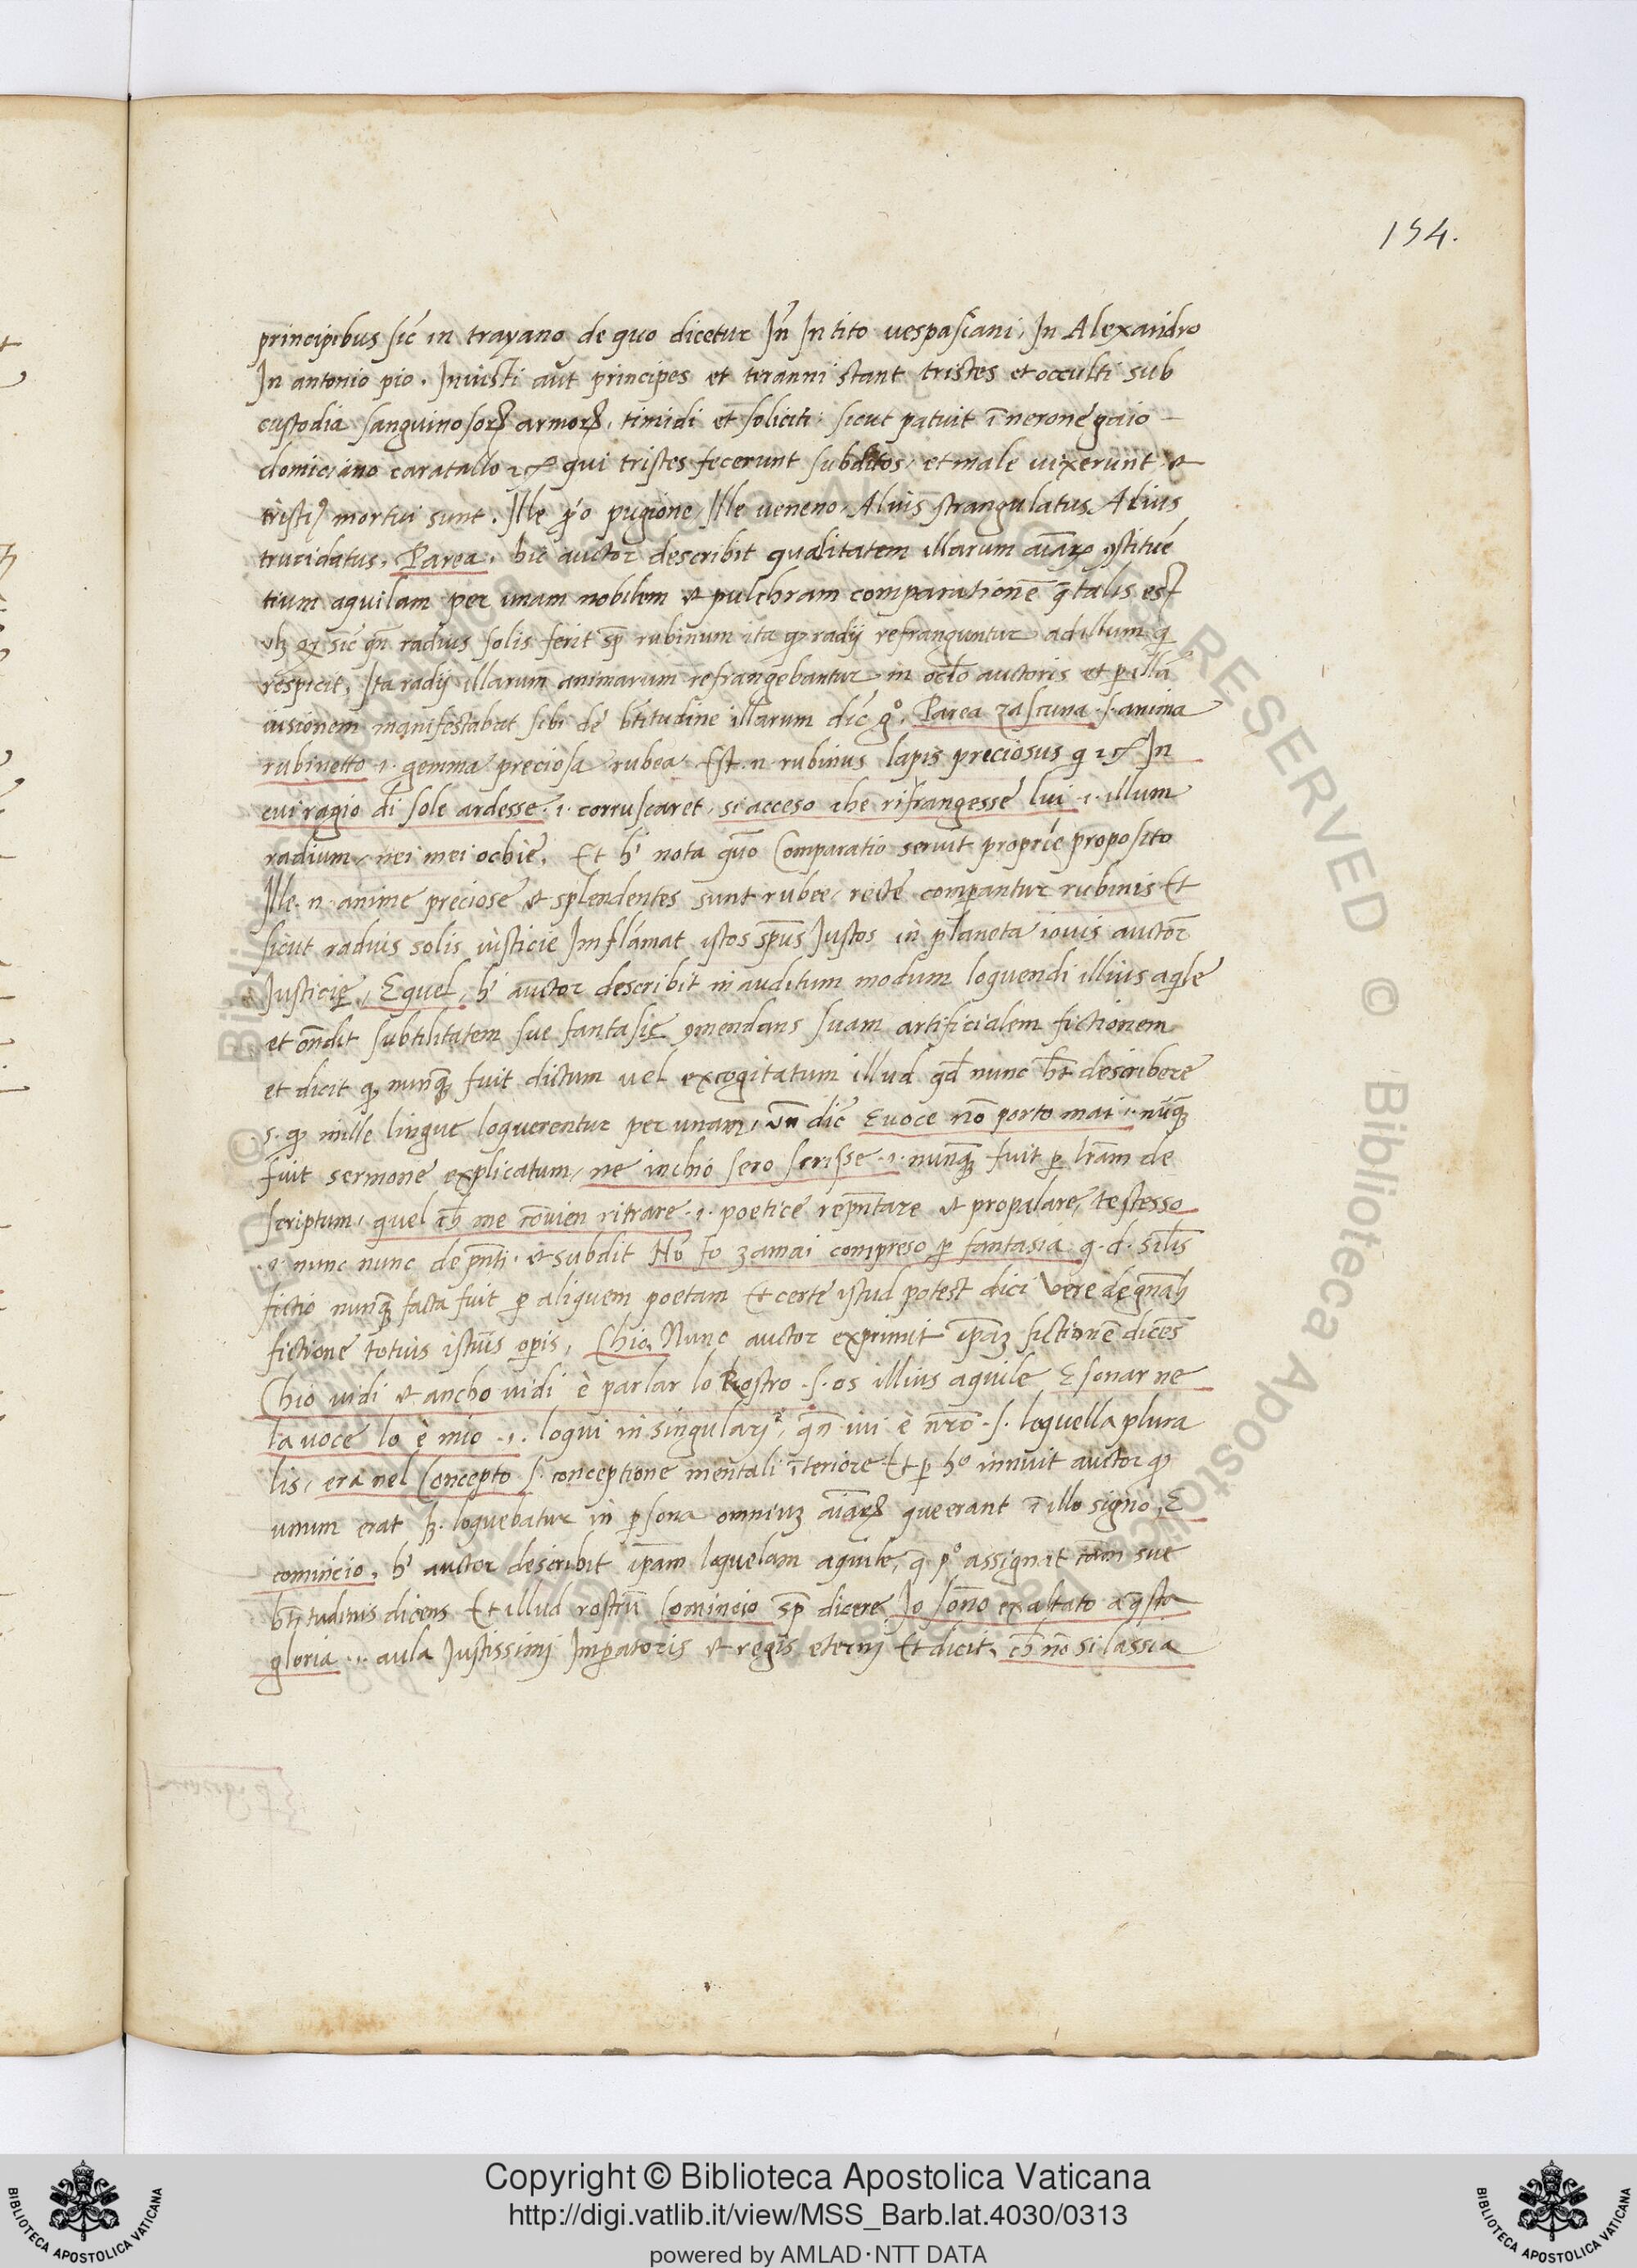 154.
principibus sic̄ in trayano de quo dicetur In̄ In tito vespasiani, In Alexandro
In antonio pio. Iniusti aut̄ principes et tiranni stant tristes et occulti sub
custodia sanguinosoꝝ armoꝝ, timidi et soliciti: sicut patuit ī nerone gaio
domiciano caratallo ⁊c̄ qui tristes fecerunt subditos, et male vixerunt et
tristiꝰ mortui sunt. Ille pugione, Ille veneno, Alius strangulatus, Alius
trucidatus, Parea, hic auctor describit qualitatem illarum aīaꝝ ꝯstituē
tium aquilam per unam nobilem et pulchram comparationē q̄ talis est
sic̄ radius solis ferit sp̄ rubinum ita ꝙ radij refranguntur ad illum q̄
respicit, Ita radij illarum animarum refrangebantur in octō auctoris et ꝑ illā
uisionem manifestabat sibi de b̄titudine illarum dic̄ gº. Parea zascuna .s. anima
rubinetto .i. gemma preciosa rubea Est .n. rubinus lapis preciosus q ⁊c̄ In
cui ragio di sole ardesse .i. corruscaret, si acceso che rifrangesse lui .i. illum
radium, nei mei ochie, Et h' nota quō Comparatio seruit proprie proposito
Ille .n. anime preciose et splendentes sunt rubee, recte comꝑantur rubinis Et
sicut radius solis iusticie Inflāmat istos sp̄us Iustos in planeta iouis auctor
Iusticię, Equel, h' auctor describit in auditum modum loquendi illius aq̄le
et on̄dit subtilitatem sue fantasię ꝯmendans suam artificialem fictionem
et dicit ꝙ nunq̄ fuit dictum vel excogitatum illud qd̄ nunc h̄t describere
.s. ꝙ mille lingue loquerentur per unam, un̄ dic̄ Euoce nō porto mai .i. nūq̄
fuit sermone explicatum, ne inchio sero scrisse .i. nunq̄ fuit ꝑ lr̄am de
scriptum, quel ch̄ me cōuien ritrare .i. poetice repn̄tare et propalare, testesso
.i. nunc nunc de pn̄ti. et subdit Nō fo zamai compreso ꝑ fantasia q.d. sil̄is
fictio nunq̄ facta fuit ꝑ aliquem poetam Et certe istud potest dici vere de
fictione totius istius opis, Chio, Nunc auctor exprimit ip̄aꝫ fictionē dicēs
Chio vidi et ancho vidi è parlar lo Rostro .s. os illius aquile E sonar ne
la uoce lo è mio .i. loqui in singulari, qn̄ iui è nrō .s. loquella plura
lis, era nel Concepto .s. conceptione mentali īteriore Et ꝑ hº innuit auctor ꝙ
unum erat sꝫ. loquebatur in ꝑsona omniuꝫ aīaꝝ que erant ī illo signo, E
comincio, h' auctor describit ip̄am loquelam aquile, q̄ pº assignat cām sue
b̄titudinis dicens Et illud rostrū Comincio sp̄ dicere Io sōno exaltato a q̄sta
gloria .i. aula Iustissimi Imꝑatoris et regis eterni Et dicit, ch̄ nō si lassia
Copyright © Biblioteca Apostolica Vaticana
http://digi.vatlib.it/view/MSS_Barb.lat.4030/0313
powered by AMLAD·NTT DATA
BIBLIOTECA APOSTOLICA VATICANA
BIBLIOTECA APOSTOLICA VATICANA